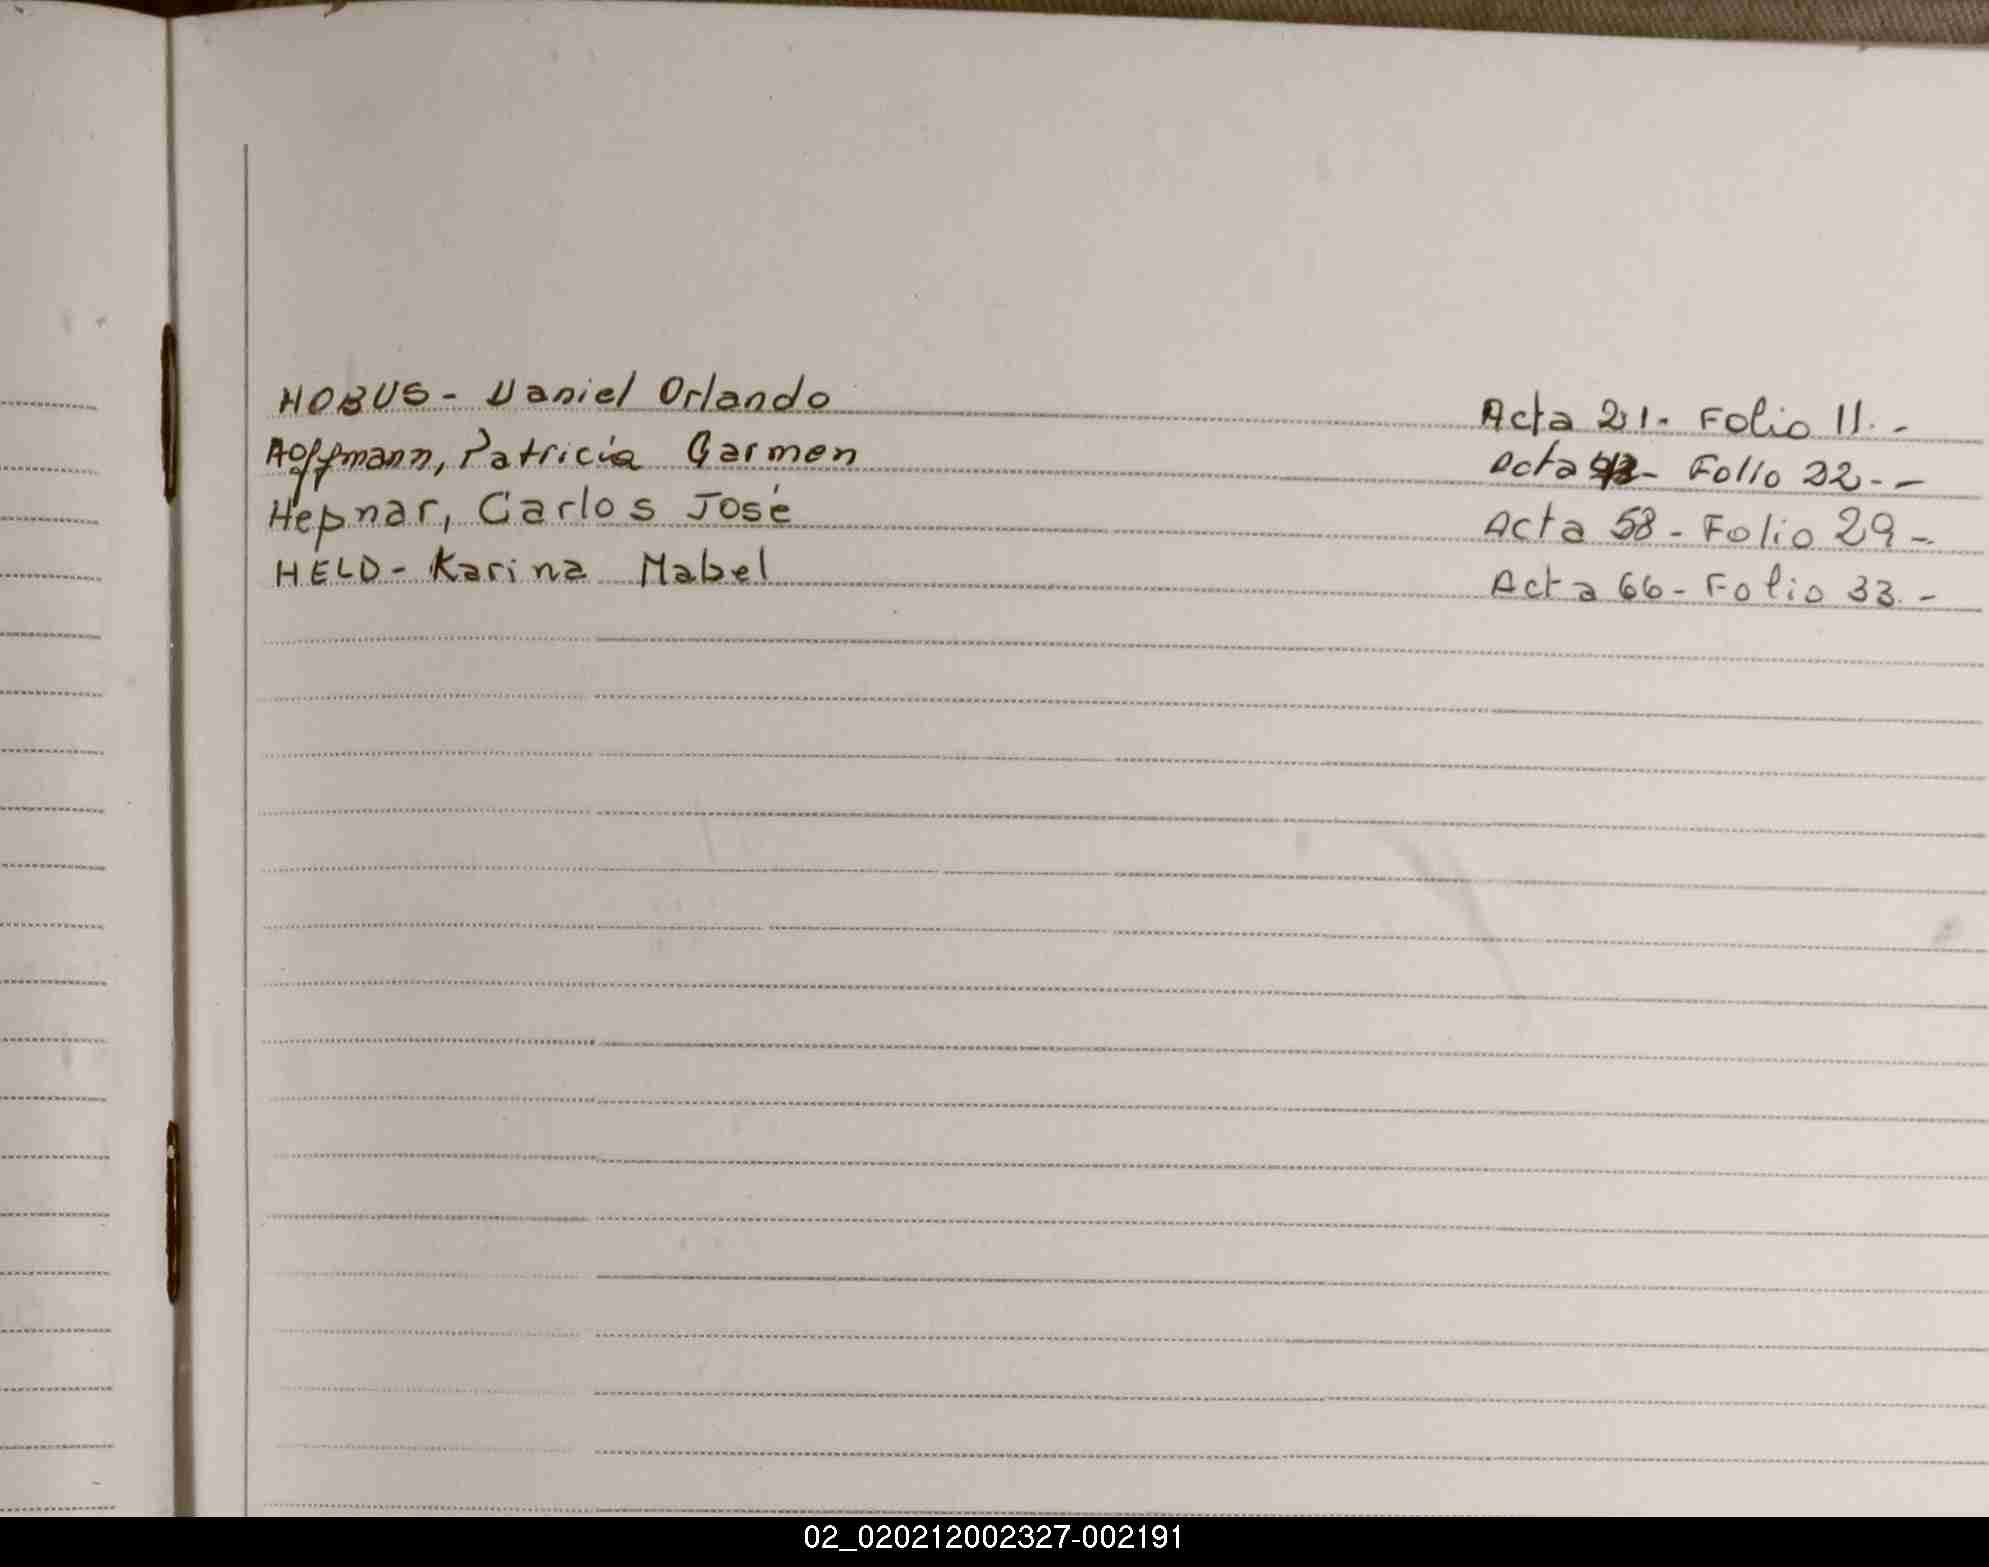 HOBUS - Daniel Orlando Acta 21 - Folio 11. -
Hoffmann, Patricia Carmen Acta - Folio 22. -
Hepnar, Carlos José Acta 58 - Folio 29 -
HELD - Karina Mabel Acta 66 - Folio 33. -
02_020212002327-002191